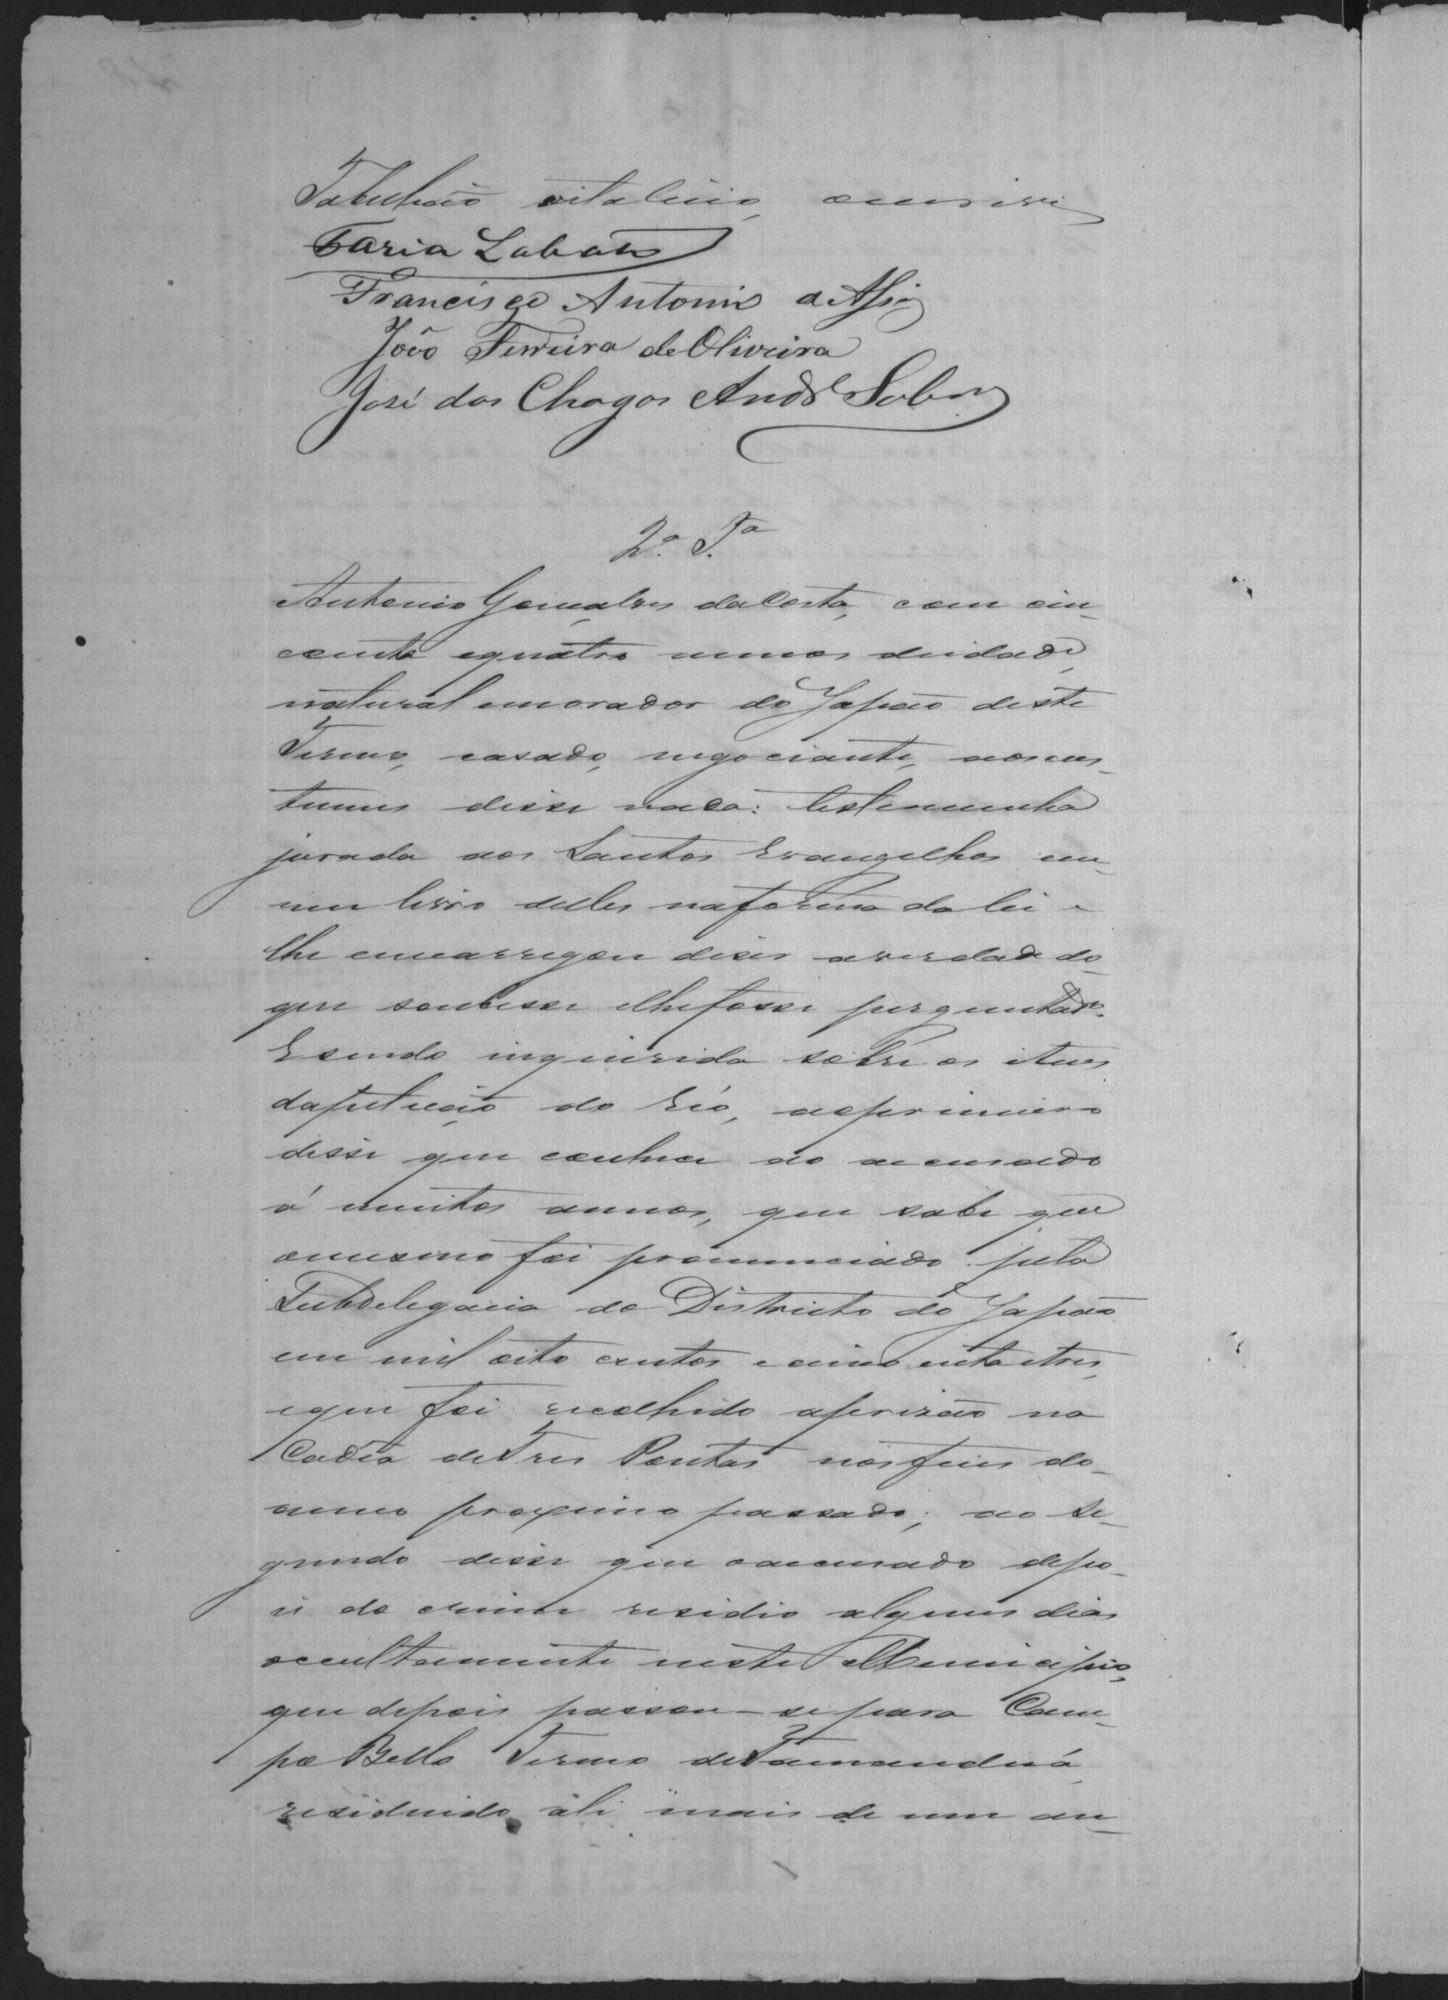 Tabelião vitalicio, o escrivi
Faria Lobato
Francisco Antonio d Assis
João Ferreira de Oliveira
José das Chagas Andr.e Sobr.o
2.a T.a
Antonio Gonçalves da Costa, com cin-
coenta equatro annos deidade,
natural emorador do Japão deste
Termo, casado, negociante, aoscus-
tumes disse nada: testemunha
jurada aos Santos Evangelhos em
um livro delles naforma da lei e
lhe encarregou diser averdade do
que soubesse elhefosse perguntado.
Esendo inquirida sobre os itens
dapetição do Réo, aoprimeiro
disse que conhece ao accusado
á muitos annos, que sabe que
omesmo foi pronunciado pela
Subdelegacia do Districto do Japão
em mil oito centos ecincoentaetres,
eque foi recolhido aprizão na
Cadêa deTres Pontas nosfins do
anno proximo passado; ao se-
gundo disse que oaccusado depo-
is do crime residio alguns dias
occultamente neste Municipio,
que depois passou-se para Cam-
po Bello Termo deTamanduá
residindo ali mais de um an-